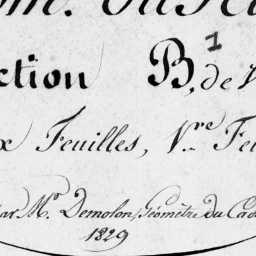 ction B, 1 de
x Feuilles, V.re Fe
ar M.r Demolon, Géomètre du Cad
1829